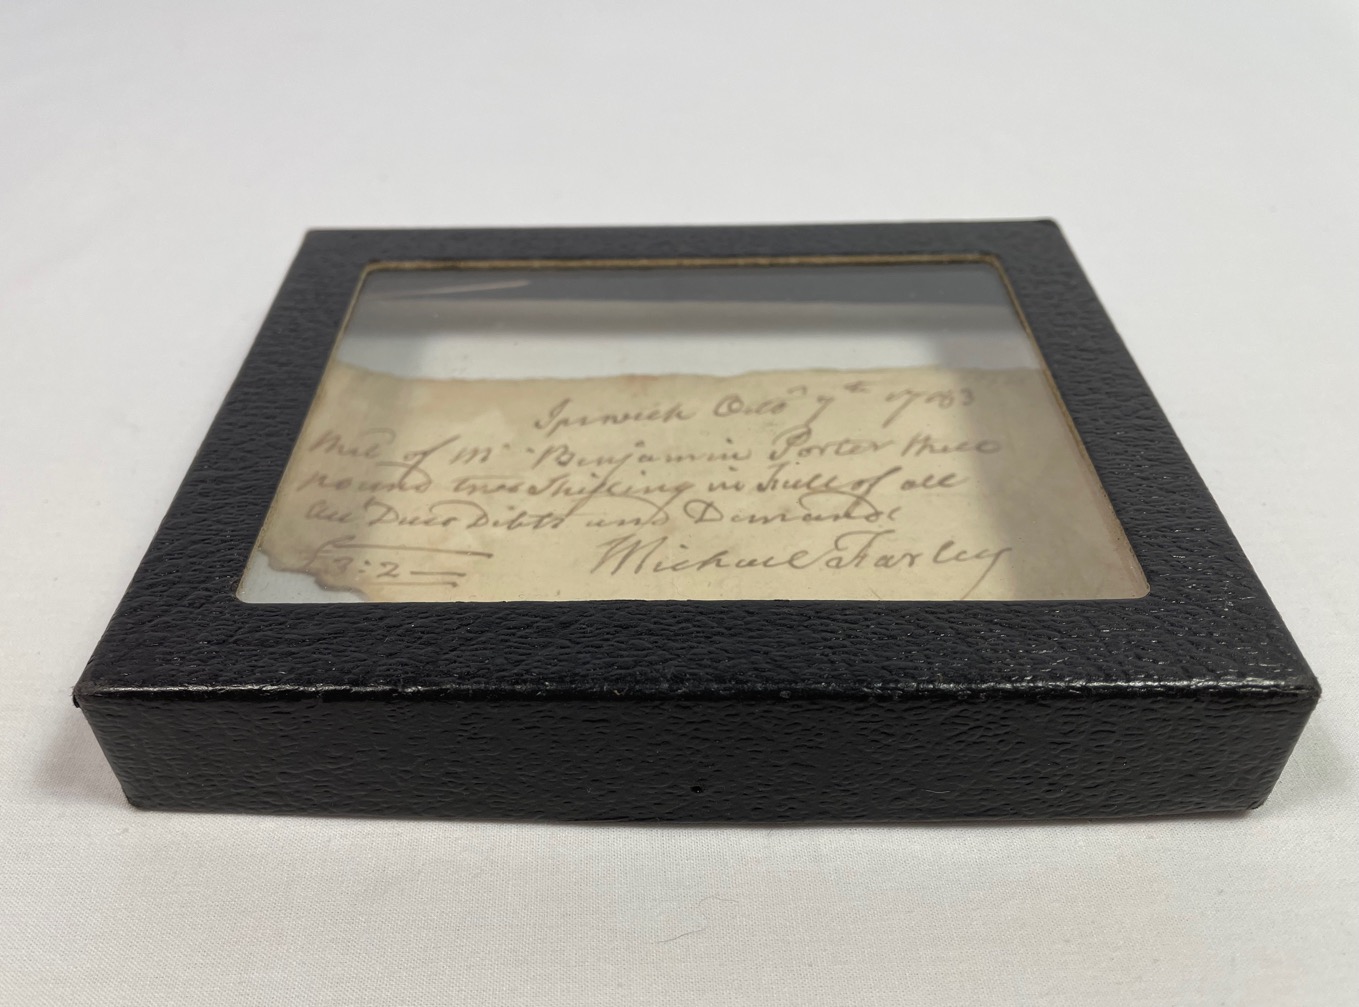 Ipswich Octo^r 7^th 1783
Rec^d of M^r Benjamin Porter three
pound two Shilling in Full of all
all Dues Debts and Demands
£3:2— Michael Farley